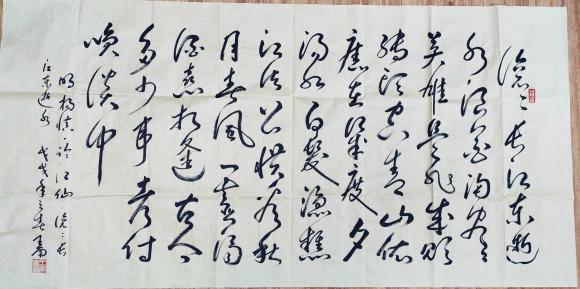 滚滚长江东逝
水浪花淘尽
英雄是非成败
转头空青山依
旧在几度夕
阳红白发渔樵
江渚上惯看秋
月春风一壶浊
酒喜相逢古今
多少事都付
笑谈中
明杨慎临江仙滚滚长
江东逝水 戊戌年之春